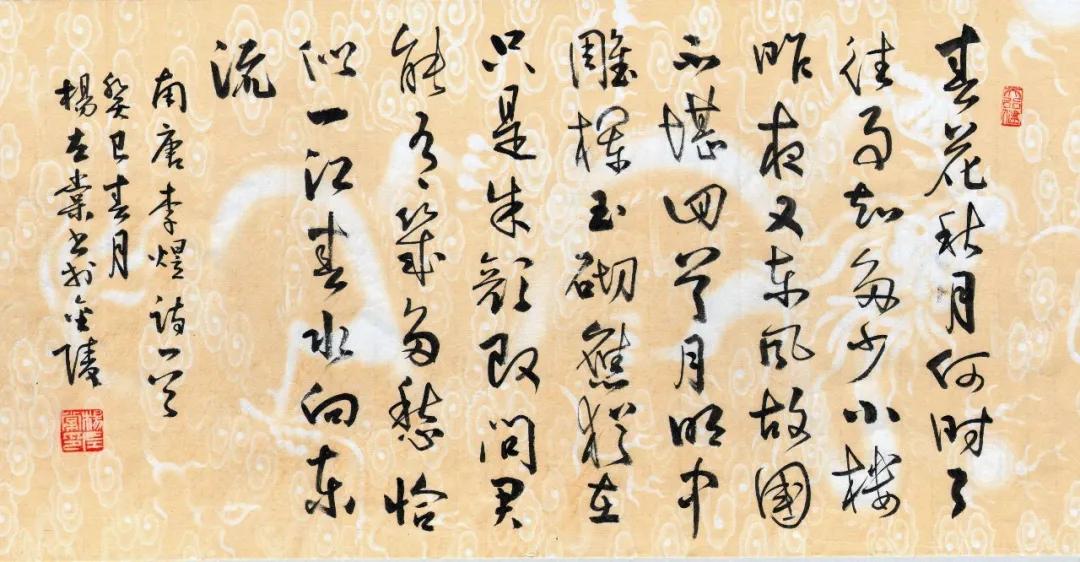 春花秋月何时了
往事知多少小楼
昨夜又东风故國
不堪回首月明中
雕欄玉砌應猶在
只是朱顔改問君
能有幾多愁恰
似一江春水向东
流
南唐李煜詩一首
癸巳春月
楊左棠书於金陵